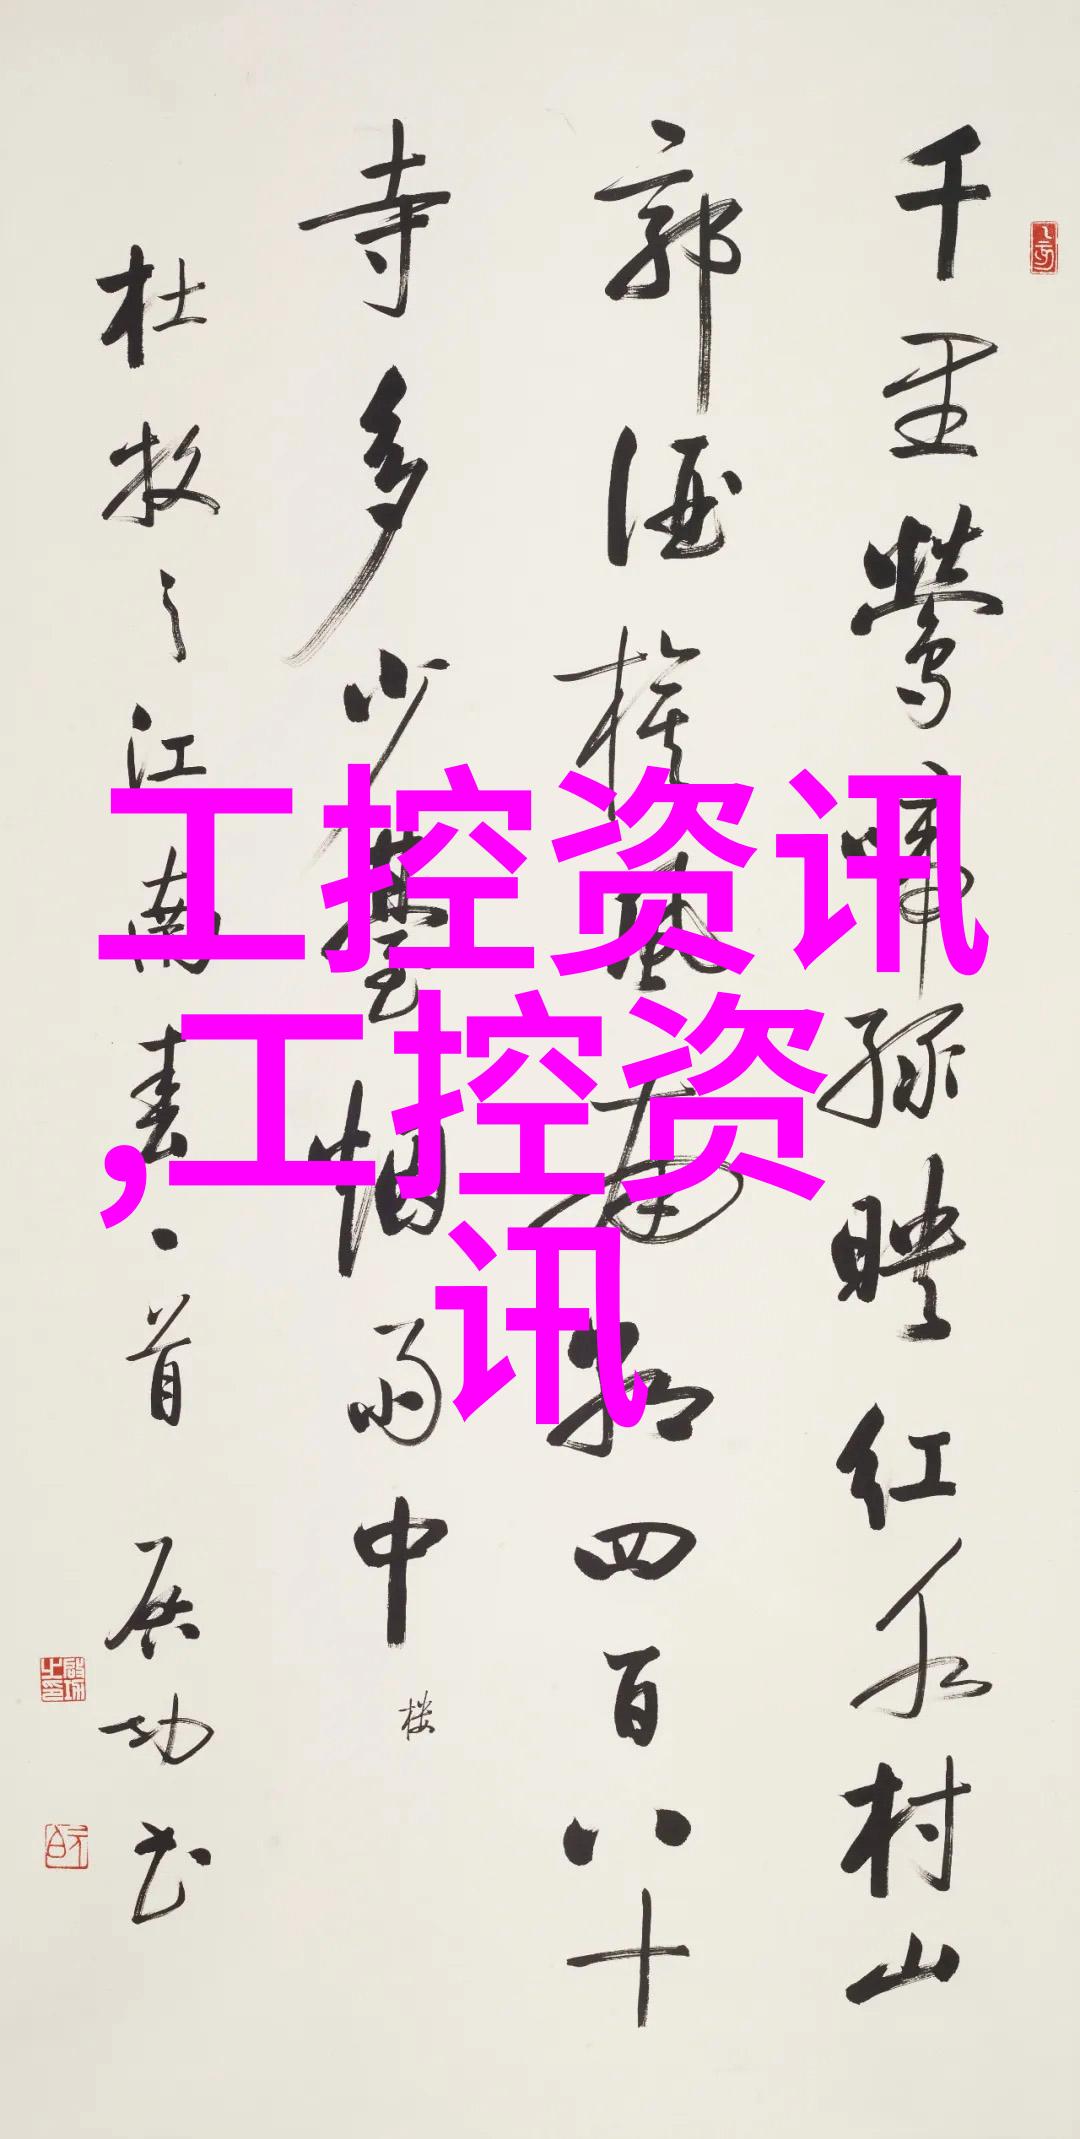 千里鶯啼绿映红水村山
郭酒旗風南朝四百八十
寺多少臺烟雨中
楼
杜牧之江南春一首 启功书
工控资讯
,工控资
讯